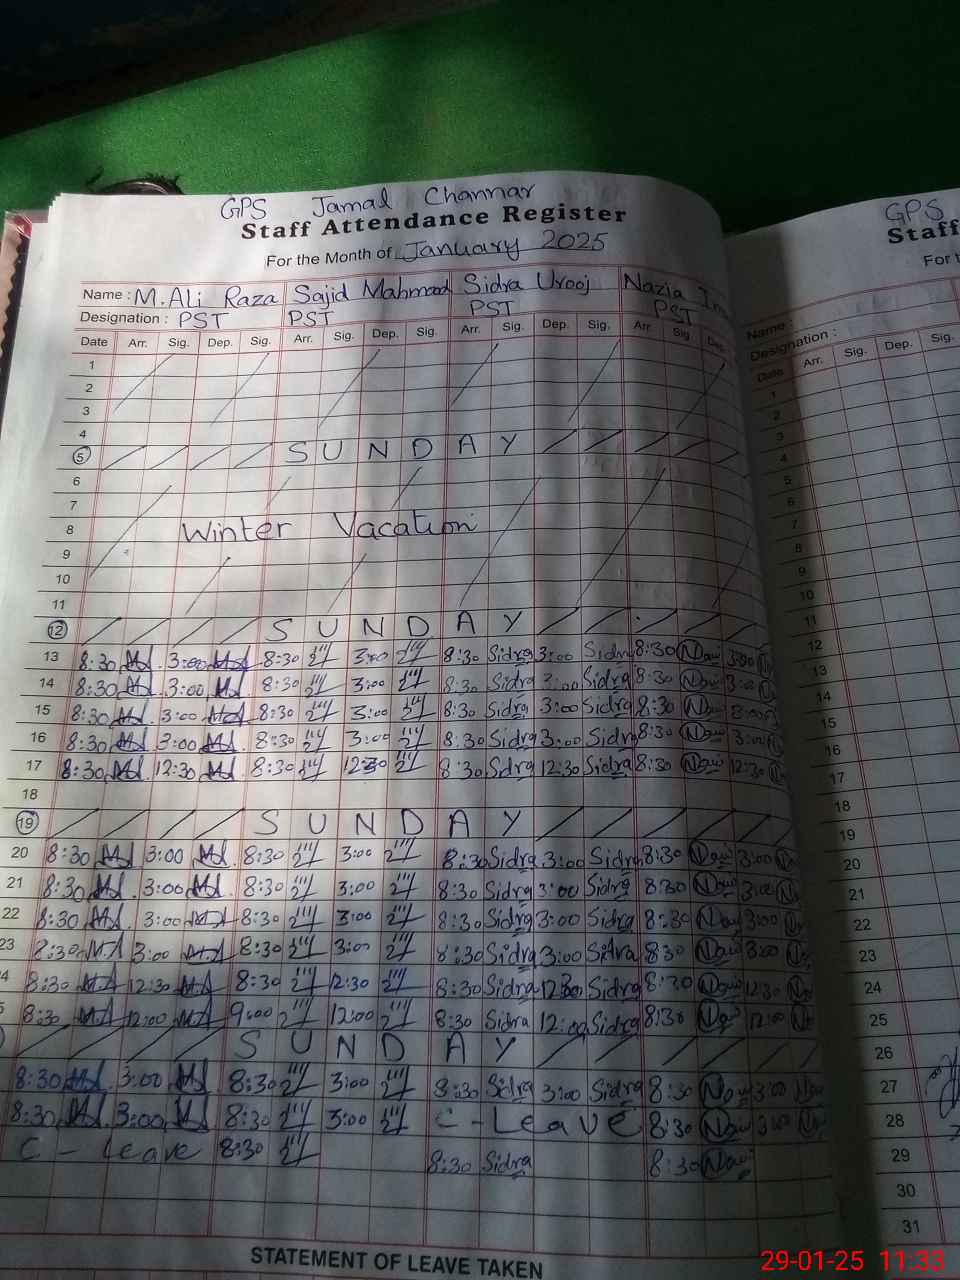 GPS Jamal Channar
Staff Attendance Register
For the Month of January 2025
Name : M.Ali Raza Sajid Mahmood Sidra Urooj Nazia
Designation : PST PST PST PST
Date Arr. Sig. Dep. Sig. Arr. Sig. Dep. Sig. Arr. Sig. Dep. Sig. Arr. Sig. Dep.
1
2
3
4
5 SUNDAY
6
7
8 Winter Vacation
9
10
11
12 SUNDAY
13 8:30 3:00 8:30 3:00 8:30 Sidra 3:00 Sidra 8:30 Naw 3:00
14 8:30 3:00 8:30 3:00 8:30 Sidra 3:00 Sidra 8:30 Naw 3:00
15 8:30 3:00 8:30 3:00 8:30 Sidra 3:00 Sidra 8:30 Naw 3:00
16 8:30 3:00 8:30 3:00 8:30 Sidra 3:00 Sidra 8:30 Naw 3:00
17 8:30 12:30 8:30 12:30 8:30 Sidra 12:30 Sidra 8:30 Naw 12:30
18
19 SUNDAY
20 8:30 3:00 8:30 3:00 8:30 Sidra 3:00 Sidra 8:30 Naw 3:00
21 8:30 3:00 8:30 3:00 8:30 Sidra 3:00 Sidra 8:30 Naw 3:00
22 8:30 3:00 8:30 3:00 8:30 Sidra 3:00 Sidra 8:30 Naw 3:00
23 8:30 M.A 3:00 8:30 3:00 8:30 Sidra 3:00 Sidra 830 Naw 3:00
4 8:30 12:30 8:30 12:30 8:30 Sidra 12:30 Sidra 8:30 Naw 12:30
5 8:30 12:00 9:00 12:00 8:30 Sidra 12:00 Sidra 8:30 Naw 12:00
SUNDAY
8:30 3:00 8:30 3:00 8:30 Sidra 3:00 Sidra 8:30 Naw 3:00 Naw
8:30 3:00 8:30 3:00 C-Leave 8:30 Naw 3:00
C - Leave 8:30 8:30 Sidra 8:30 Naw
STATEMENT OF LEAVE TAKEN
GPS
Staff
For t
Name :
Designation :
Date Arr. Sig. Dep. Sig.
1
2
3
4
5
6
7
8
9
10
11
12
13
14
15
16
17
18
19
20
21
22
23
24
25
26
27
28
29
30
31
29-01-25 11:33